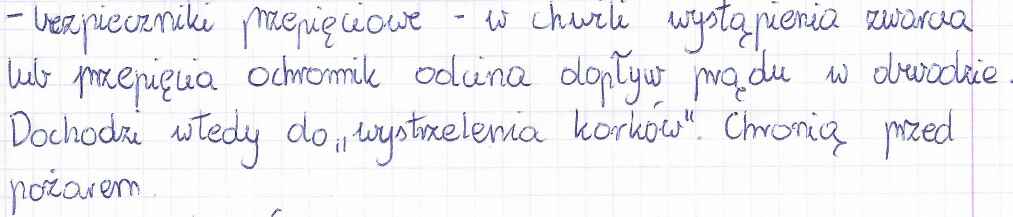 - bezpieczniki przepięciowe - w chwili wystąpienia zwarcia
lub przepięcia ochronnik odcina dopływ prądu w obwodzie.
Dochodzi wtedy do „wystrzelenia korków". Chronią przed
pożarem.